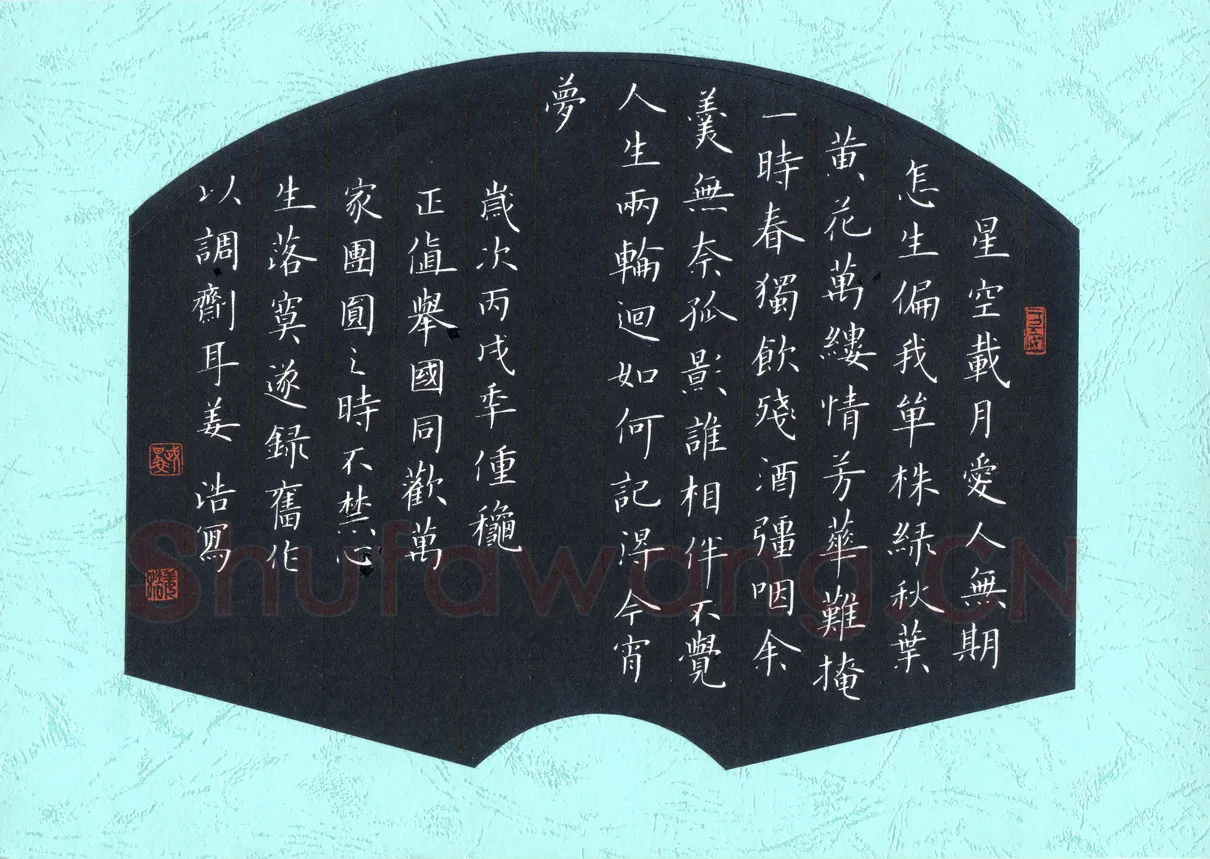 星空載月愛人無期
怎生偏我單株緑秋葉
黄花萬縷情芳華難掩
一時春獨飲殘酒彊咽余
羹無奈孤影誰相伴不覺
人生兩輪迴如何記得今宵
夢
歲次丙戌秊偅龝
正值舉國同歡萬
家團圓之時不禁心
生落寞遂録舊作
以調劑耳姜浩寫
Shufawang.CN